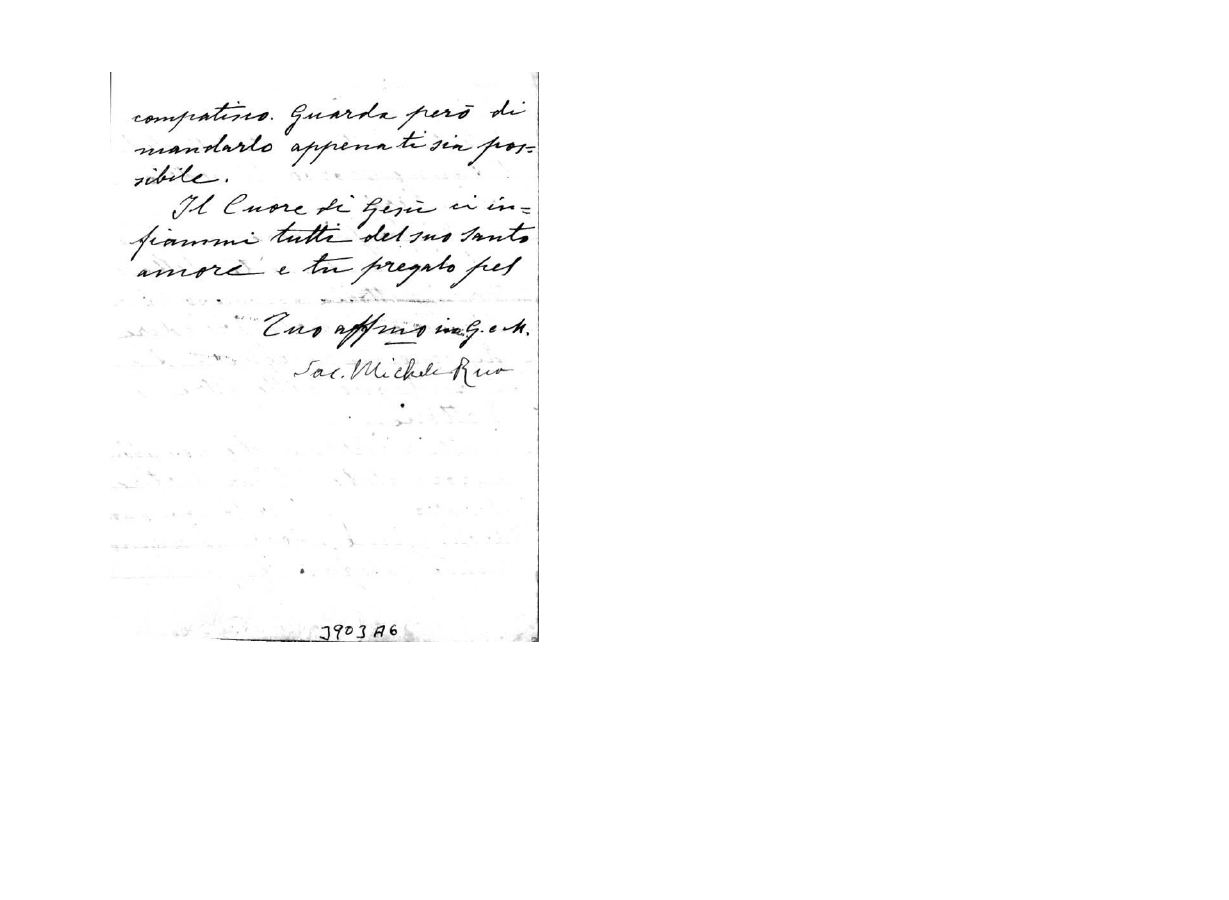 compatisco. Guarda però di
mandarlo appena ti sia pos=
sibile.
Il Cuore di Gesù ci in=
fiammi tutti del suo santo
amore e tu pregalo pel
Tuo affmo in G. e M.
Sac. Michele Rua
J903 A6